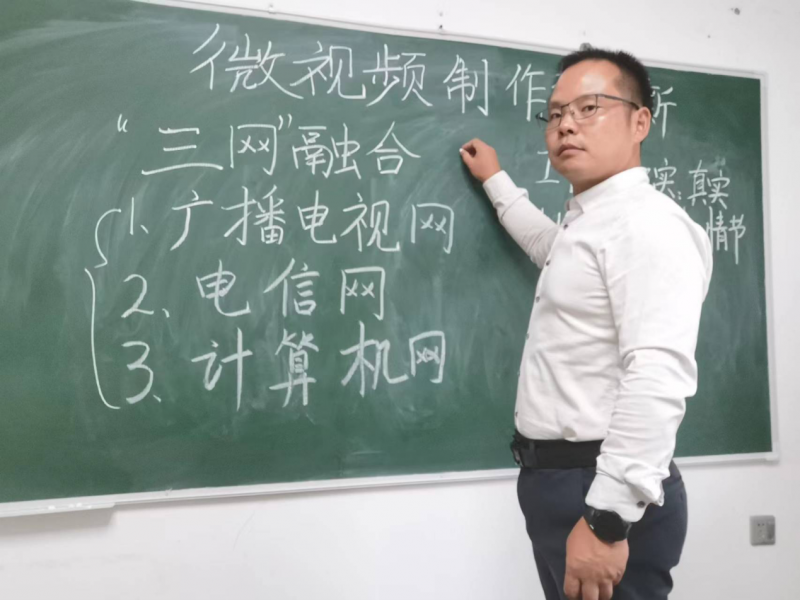 微视频制作 所
“三网”融合
1.广播电视网
2、电信网
3、计算机网
实:真实
情节